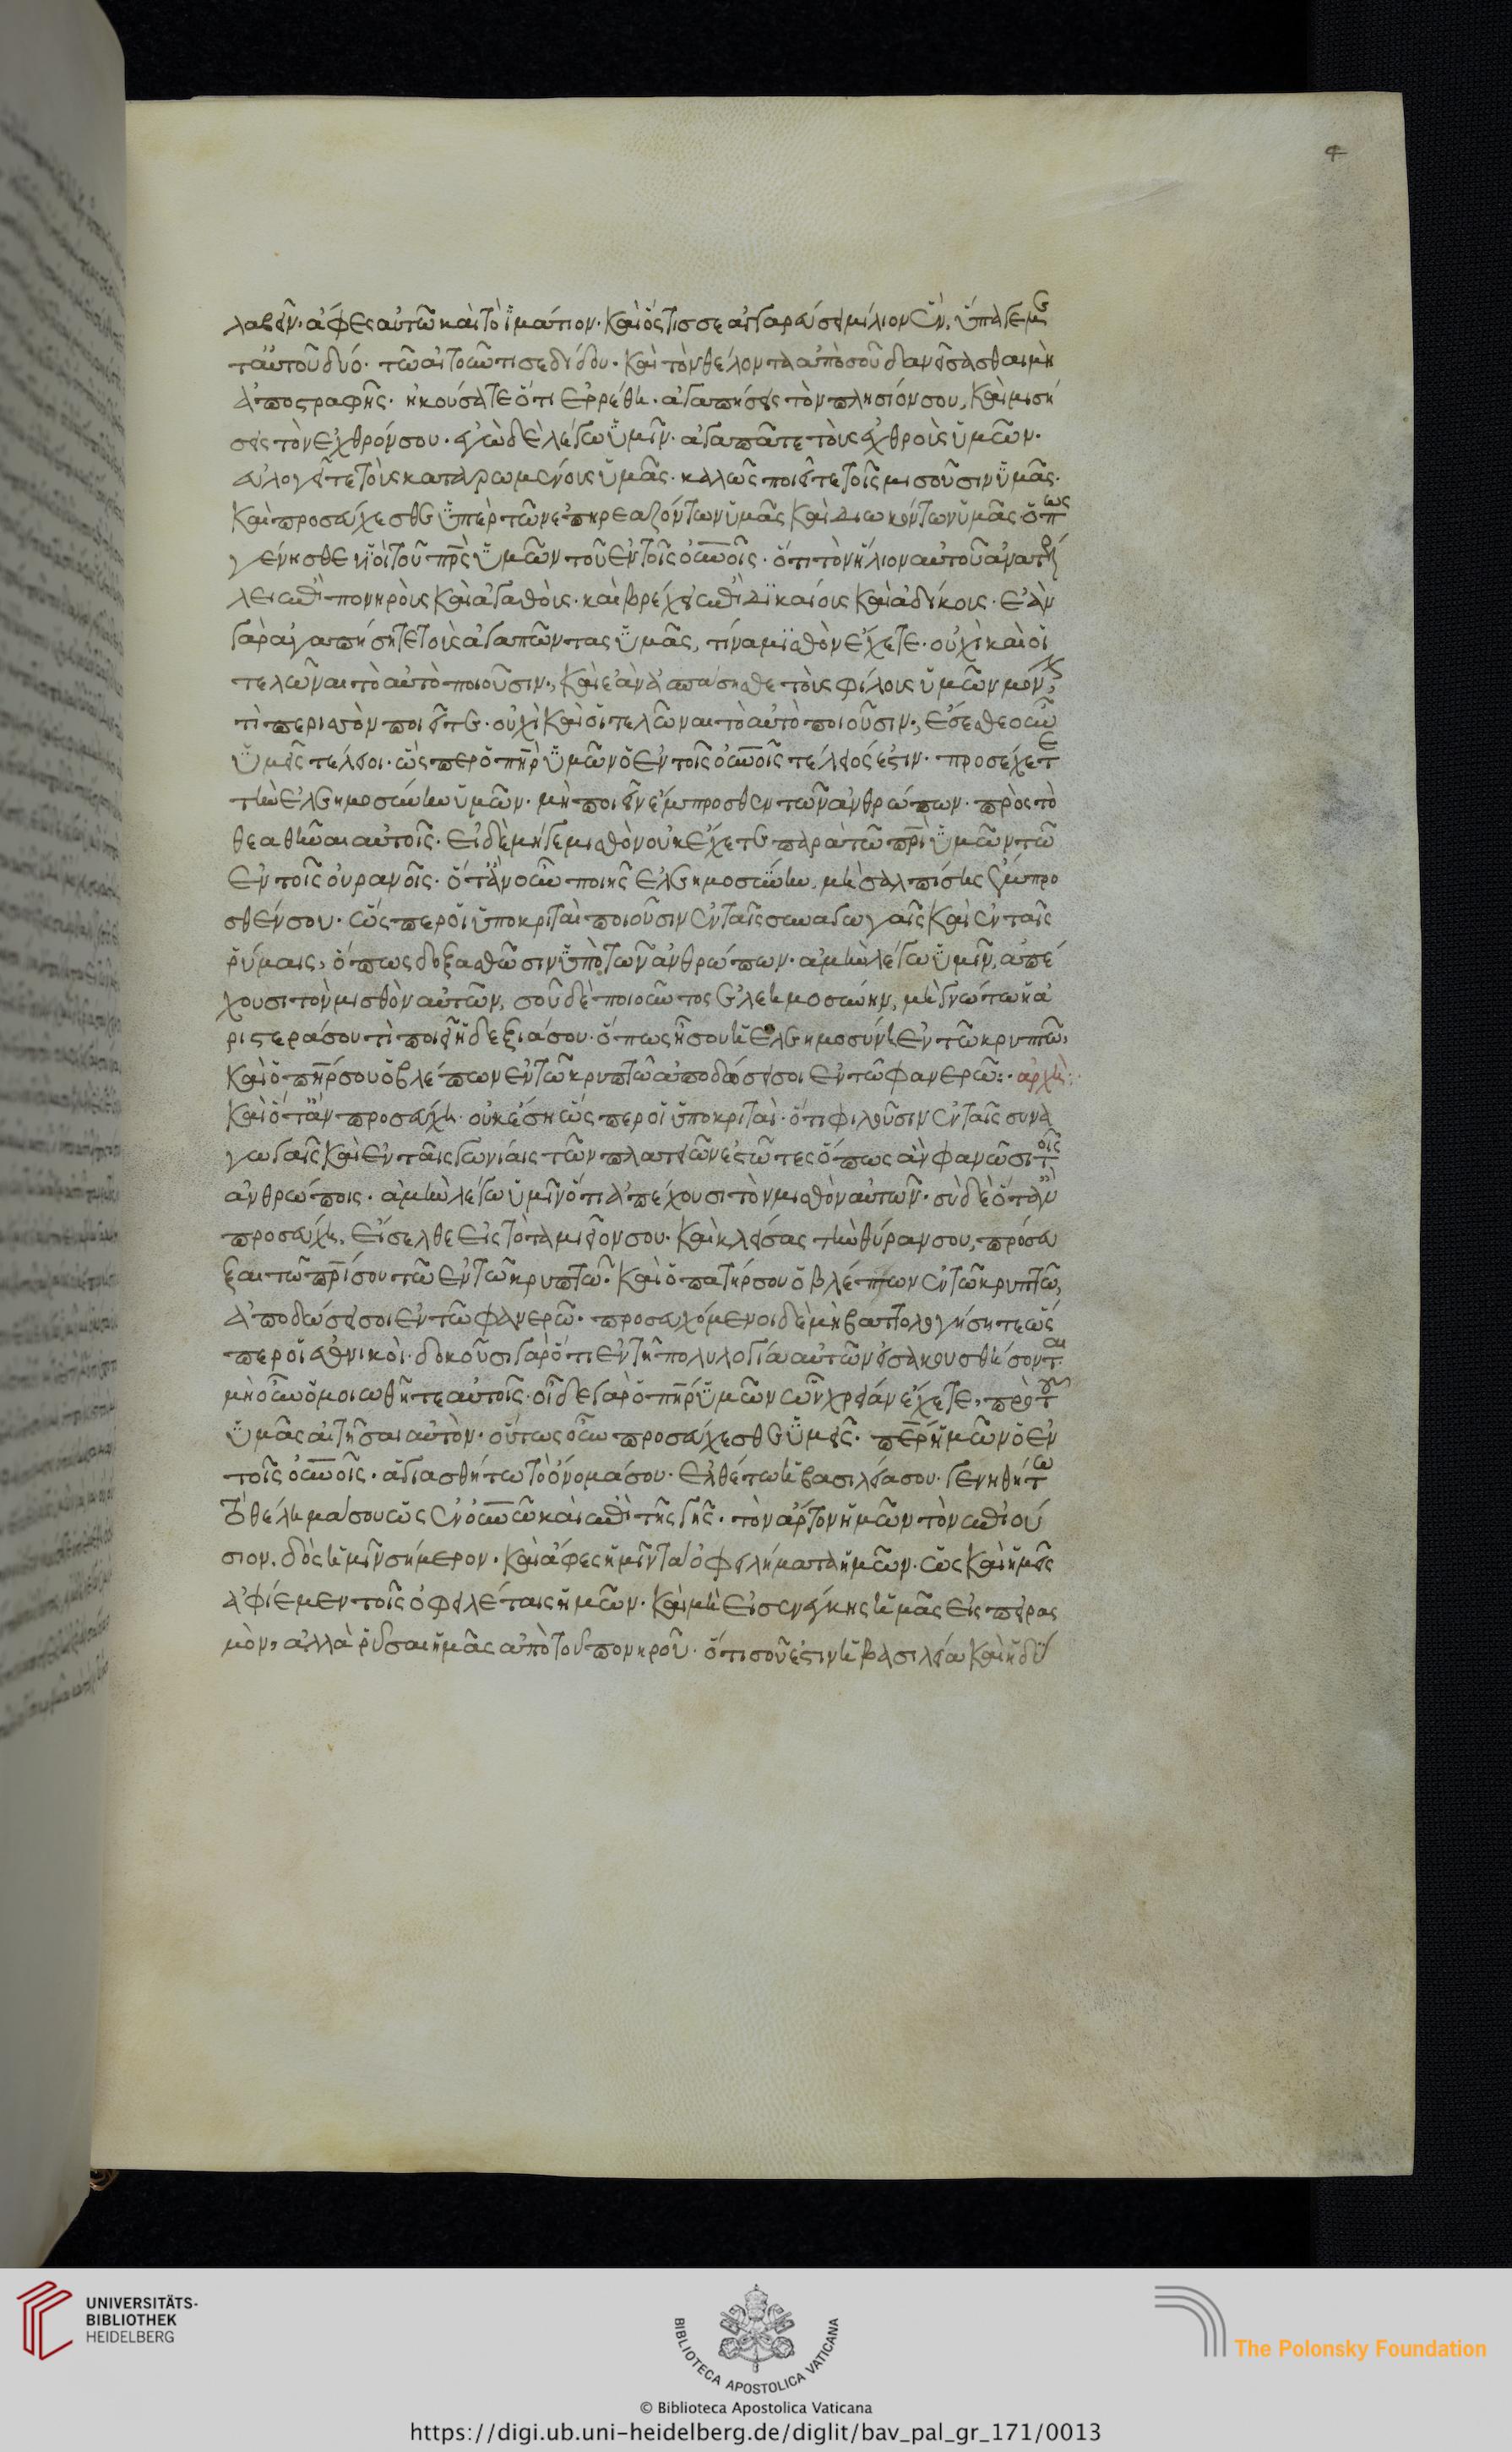 4
λαβεῖν· ἄφες αὐτῶ καὶ τὸ ϊμάτιον· καὶ ὅστις σε ἀγγαρεύσει μίλιον ἕν, ὕπαγε με
τ' αὐτοῦ δύο· τῶ αἰτοῦντι σε δίδου· καὶ τὸν θέλοντα ἀπὸ σοῦ δανείσασθαι μὴ
ἀποστραφῆς· ἠκούσατε ὅτι ἐρρέθη· ἀγαπήσεις τὸν πλησίον σου, καὶ μισή
σεις τὸν ἐχθρόν σου· ἐγὼ δὲ λέγω ὑμῖν· ἀγαπᾶτε τοὺς ἐχθροὺς ὑμῶν·
εὐλογεῖτε τοὺς καταρωμένους ὑμᾶς· καλῶς ποιεῖτε τοῖς μισοῦσιν ὑμᾶς·
καὶ προσεύχεσθε ὑπὲρ τῶν ἐπηρεαζόντων ὑμᾶς καὶ διωκόντων ὑμᾶς· ὅπως
γένησθε υἱοὶ τοῦ πρς ὑμῶν τοῦ ἐν τοῖς οὐνοῖς· ὅτι τὸν ἥλιον αὐτοῦ ἀνατέλ
λει ἐπὶ πονηροὺς καὶ ἀγαθοὺς· καὶ βρέχει ἐπὶ δικαίους καὶ ἀδίκους· ἐὰν
γὰρ ἀγαπήσητε τοὺς ἀγαπῶντας ὑμᾶς, τίνα μισθὸν ἔχετε· οὐχὶ καὶ οἱ
τελῶναι τὸ αὐτὸ ποιοῦσιν., καὶ ἐὰν ἀσπάσησθε τοὺς φίλους ὑμῶν μόνον,
τὶ περισσὸν ποιεῖτε· οὐχὶ καὶ οἱ τελῶναι τὸ αὐτὸ ποιοῦσιν., ἔσεσθε οὖν
ὑμεῖς τέλειοι· ὥσπερ ὁ πηρ ὑμῶν ὁ ἐν τοῖς οὐνοῖς τέλειός ἐστιν· προσέχετε
τὴν ἐλεημοσύνην ὑμῶν· μὴ ποιεῖν ἔμπροσθεν τῶν ἀνθρώπων· πρὸς τὸ
θεαθῆναι αὐτοῖς· εἰ δὲ μήγε μισθὸν οὐκ ἔχετε παρὰ τῶ πρι ὑμῶν τῶ
ἐν τοῖς οὐρανοῖς· ὅταν οὖν ποιῆς ἐλεημοσύνην, μὴ σαλπίσης ἔμπρο
σθέν σου· ὥσπερ οἱ ὑποκριταὶ ποιοῦσιν ἐν ταῖς συναγωγαῖς καὶ ἐν ταῖς
ῥύμαις, ὅπως δοξασθῶσιν ὑπὸ τῶν ἀνθρώπων· ἀμὴν λέγω ὑμῖν, ἀπέ
χουσι τὸν μισθὸν αὐτῶν, σοῦ δὲ ποιοῦντος ἐλεημοσύνην, μὴ γνώτω ἡ ἀ
ριστερά σου τὶ ποιεῖ ἡ δεξιά σου· ὅπως ἦ σου ἡ ἐλεημοσύνη ἐν τῶ κρυπτῶ,
καὶ ὁ πηρ σου ὁ βλέπων ἐν τῶ κρυπτῶ ἀποδώσει σοι ἐν τῶ φανερῶ:· ἀρχὴ:·
καὶ ὅταν προσεύχη· οὐκ ἔση ὥσπερ οἱ ὑποκριταὶ· ὅτι φιλοῦσιν ἐν ταῖς συνα
γωγαῖς καὶ ἐν ταῖς γωνίαις τῶν πλατειῶν ἑστῶτες ὅπως ἂν φανῶσι τοῖς
ἀνθρώποις· ἀμὴν λέγω ὑμῖν ὅτι ἀπέχουσι τὸν μισθὸν αὐτῶν· σὺ δὲ ὅταν
προσεύχη, εἴσελθε εἰς τὸ ταμιεῖον σου· καὶ κλείσας τὴν θύραν σου, πρόσευ
ξαι τῶ πρί σου τῶ ἐν τῶ κρυπτῶ· καὶ ὁ πατήρ σου ὁ βλέπων ἐν τῶ κρυπτῶ,
ἀποδώσει σοι ἐν τῶ φανερῶ· προσευχόμενοι δὲ μὴ βαττολογήσητε ὥσ
περ οἱ ἐθνικοὶ· δοκοῦσι γὰρ ὅτι ἐν τῆ πολυλογία αὐτῶν εἰσακουσθήσονται·
μὴ οὖν ὁμοιωθῆτε αὐτοῖς· οἶδε γὰρ ὁ πηρ ὑμῶν ὧν χρείαν ἔχετε, πρὸ τοῦ
ὑμᾶς αἰτῆσαι αὐτὸν· οὕτως οὖν προσεύχεσθε ὑμεῖς· περ ἡμῶν ὁ ἐν
τοῖς οὐνοῖς· ἁγιασθήτω τὸ ὄνομά σου· ἐλθέτω ἡ βασιλεία σου· γενηθήτω
τὸ θέλημά σου ὡς ἐν οὐνῶ καὶ ἐπὶ τῆς γῆς· τὸν ἄρτον ἡμῶν τὸν ἐπιού
σιον, δὸς ἡμῖν σήμερον· καὶ ἄφες ἡμῖν τὰ ὀφειλήματα ἡμῶν· ὡς καὶ ἡμεῖς
ἀφίεμεν τοῖς ὀφειλέταις ἡμῶν· καὶ μὴ εἰσενέγκης ἡμᾶς εἰς πειρασ
μὸν, ἀλλὰ ῥῦσαι ἡμᾶς ἀπὸ τοῦ πονηροῦ· ὅτι σοῦ ἐστιν ἡ βασιλεία καὶ ἡ δύ
UNIVERSITÄTS-
BIBLIOTHEK
HEIDELBERG
BIBLIOTECA APOSTOLICA VATICANA
The Polonsky Foundation
© Biblioteca Apostolica Vaticana
https://digi.ub.uni-heidelberg.de/diglit/bav_pal_gr_171/0013